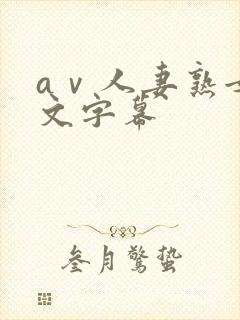 a v 人妻熟
文字幕
叁月驚蛰